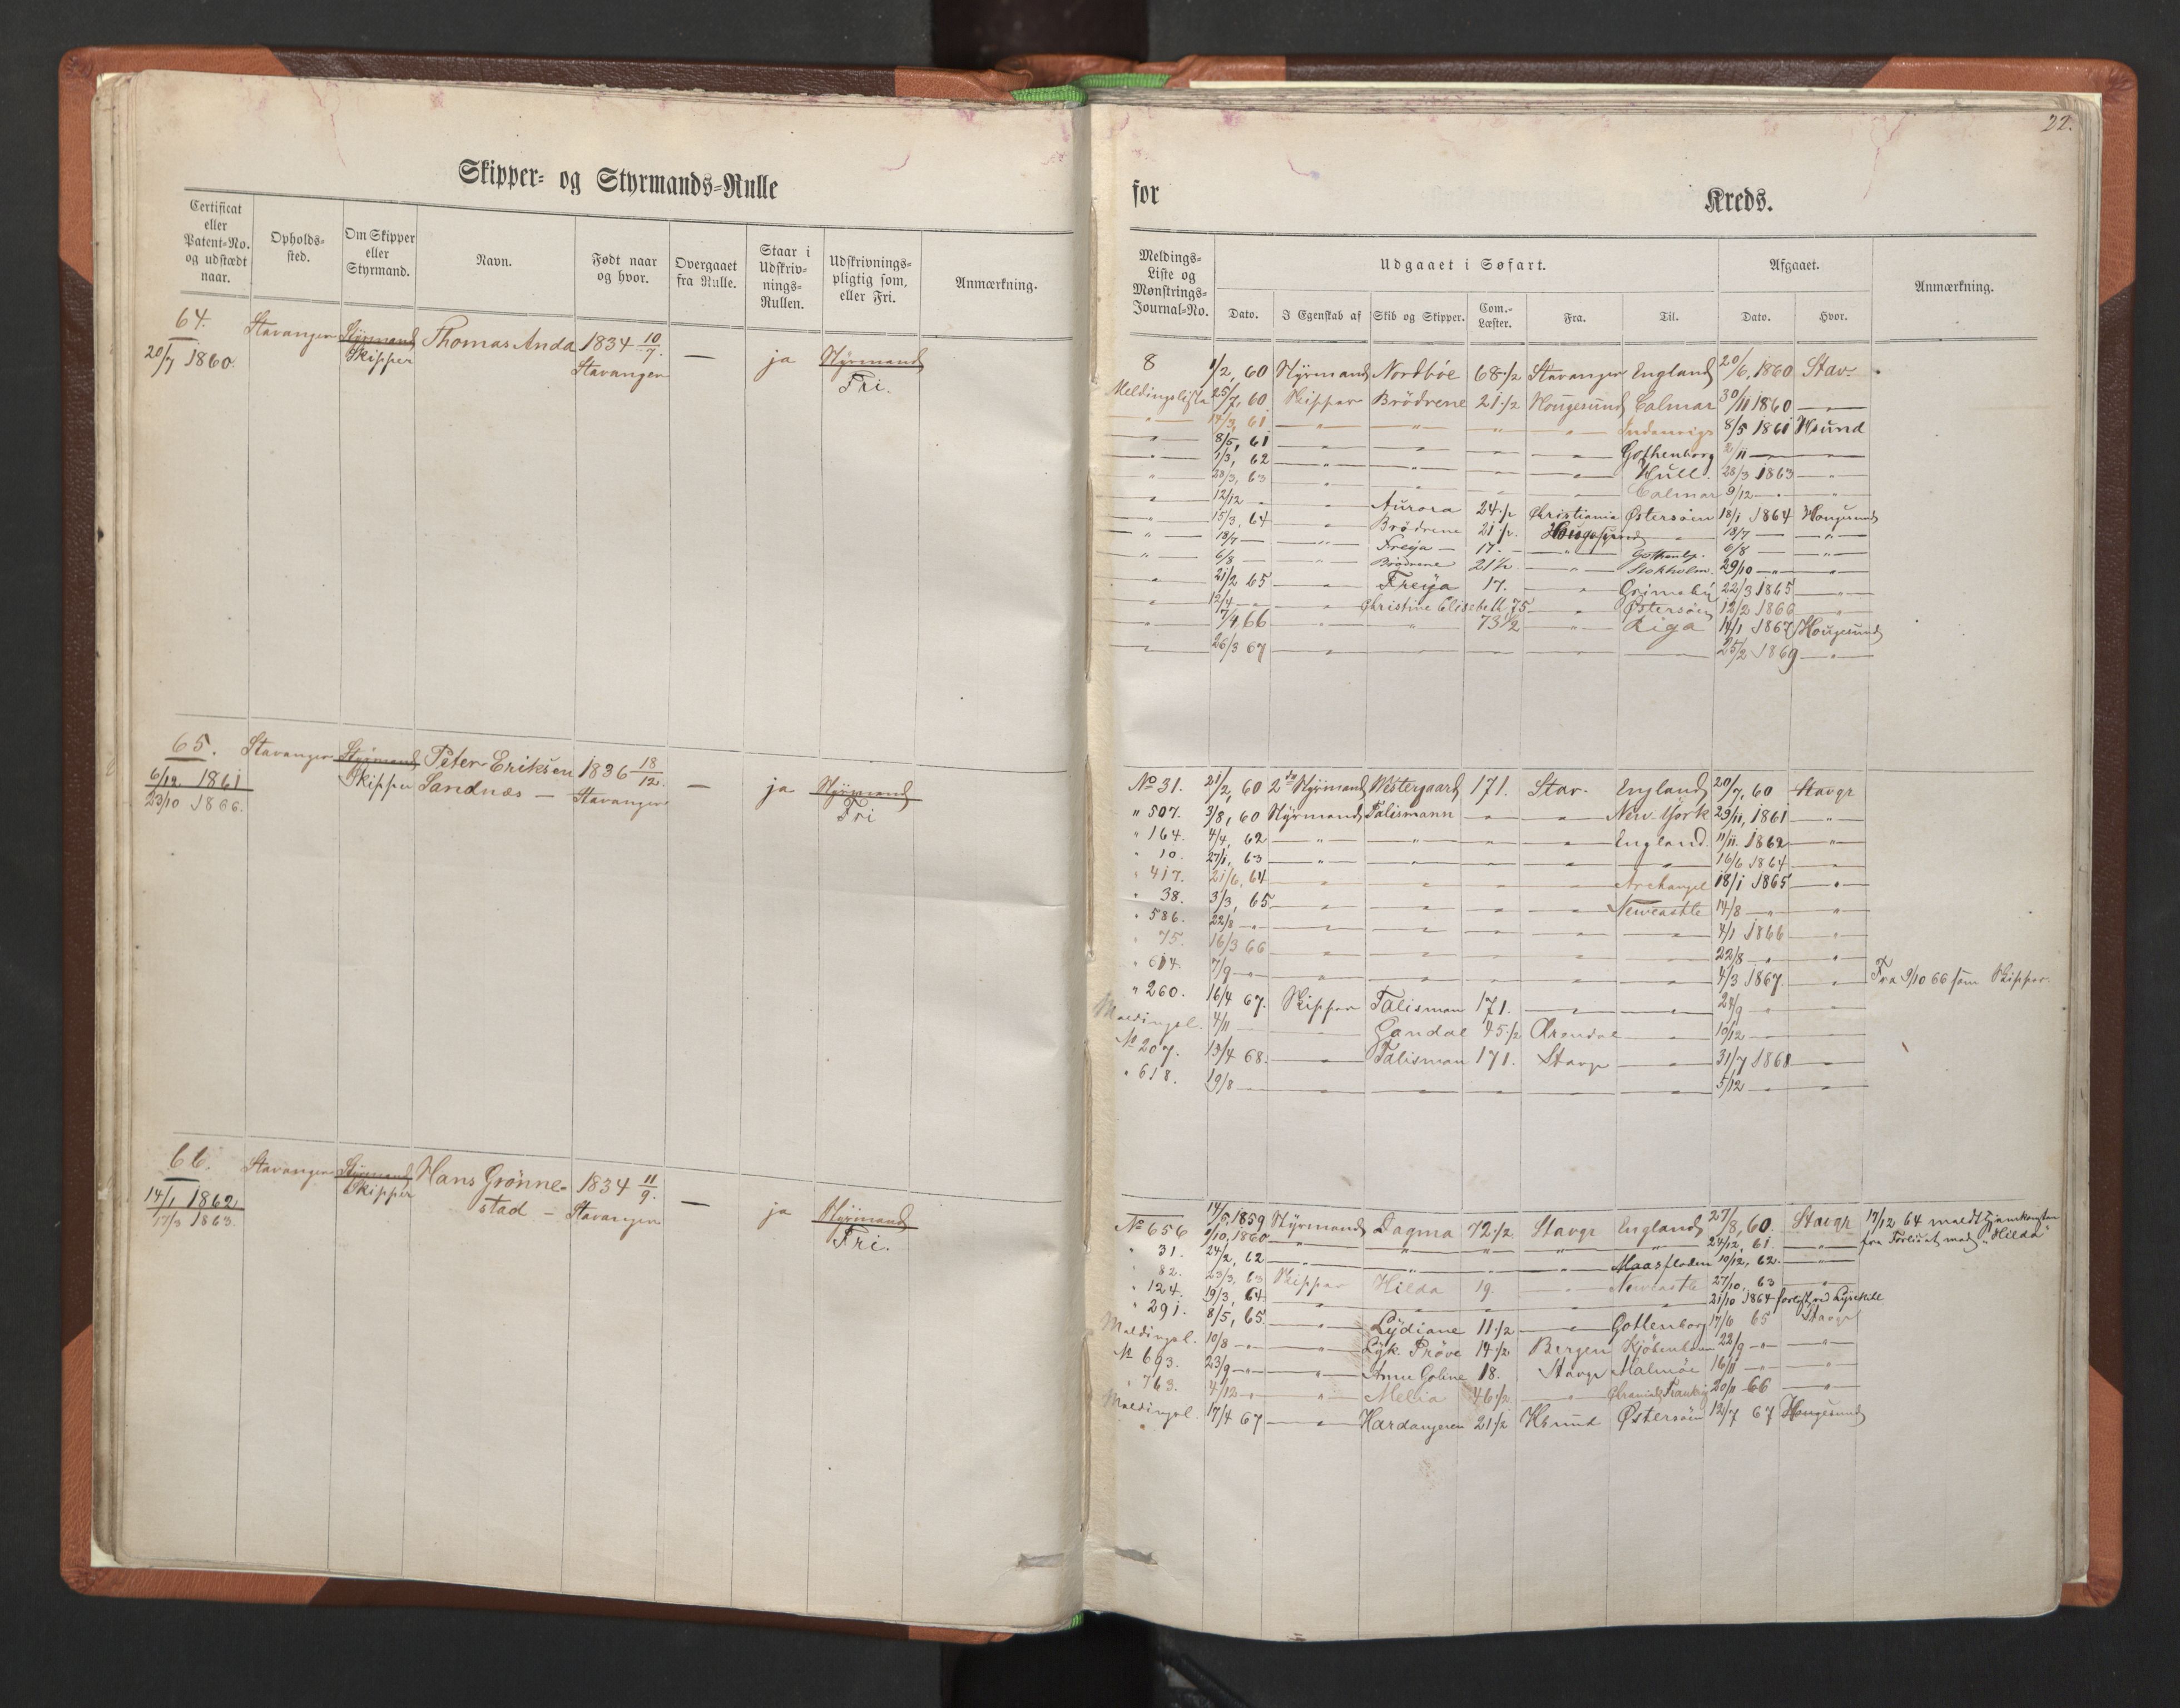 Skipper- og Styrmands-Rulle
Certificat eller Patent-No. og udstædt naar.
Opholds-sted.
Om Skipper eller Styrmand.
Navn.
Født naar og hvor.
Overgaaet fra Rulle.
Staar i Udskriv-nings-Rullen.
Udskrivnings-pligtig som, eller Fri.
Anmærkning.
64. Stavanger Styrmand Thomas Anda 1834 10/7. — ja Styrmand
20/7 1860. Skipper Stavanger Fri.
65. Stavanger Styrmand Peter Eriksen 1836 18/12. — ja Styrmand
6/12 1861 Skipper Sandnæs — Stavanger Fri
23/10 1866.
66. Stavanger Styrmand Hans Grönne- 1834 11/9. — ja Styrmand
14/1 1862 Skipper stad — Stavanger Fri.
17/3 1863.
22.
for Kreds.
Meldings-Liste og Mønstrings-Journal-No.
Udgaaet i Søfart.
Afgaaet.
Anmærkning.
Dato. I Egenskab af Skib og Skipper. Com.-Læster. Fra. Til. Dato. Hvor.
8 1/2, 60 Styrmand Nordböe 68 1/2 Stavanger England 20/6, 1860 Stav.
Meldingsliste 25/7, 60 Skipper Brödrene 21 1/2 Hougesund Calmar 30/11 1860 —
" 14/3, 61 " " " " Indenrigs 8/5 1861 Hsund
" 8/5, 61 " " " " Gothenborg 2/11 — "
" 1/3, 62 " " " " Hull. 28/3 1863 "
" 28/3, 63 " " " " Calmar 9/12 — "
" 12/12 — " Aurora 24 1/2 Christiania Östersöen 18/1 1864 Hougesund
" 15/3, 64 " Brödrene 21 1/2 Hougesund " 18/7 — "
" 18/7 — " Freya — 17. — " Gothenbg. 6/8 — "
" 6/8 — " Brödrene 21 1/2 " Stokholm. 29/10 — "
" 21/2 65 " Freya 17. " Grimsby 22/3 1865 "
" 12/4 — " Christine Elisabeth 75 " Östersöen 12/2 1866 "
" 7/4 66 " " 73 1/2 " Riga 14/1 1867 Hougesund
" 26/3 67 " — — — — 25/2 1869 "
No 31. 21/2, 60 2den Styrmand Westergaard 171. Stav. England 20/7, 60 Stavgr
" 507. 3/8, 60 Styrmand Talismann " " New York 29/11, 1861 "
" 164. 4/4, 62 " " " " England. 11/11. 1862 "
" 10. 27/1, 63 " " " " " 16/6 1864 "
" 417. 21/6, 64 " " " " Archangel 18/1 1865 "
" 38. 3/3, 65 " " " " Newcastle 14/8 " "
" 586. 22/8 " " " " " " 4/1 1866 "
" 75. 16/3 66 " " " " " 22/8 " "
" 614. 7/9 " " " " " " 4/3 1867. " Fra 9/10 66 som Skipper.
" 260. 16/4 67. Skipper Talisman 171. " " 28/9 " "
Meldingsl. 4/11 — " Gandal 45 1/2 Arendal " 10/12 — "
No 207. 13/4 68. " Talisman 171. Stavgr " 31/7 1868 "
" 618. 19/8 " " " " " " 5/12 " "
14/5, 1859
No 656 9/10, 1860 Styrmand Dagma 72 1/2 Stavgr England 27/8, 60. Stavgr 17/12 64 meldt Hjemkomsten
" " " " " 24/12, 61. " fra Forliset med "Hilda"
" 31. 24/2, 62 " " " " Maasfloden 10/12, 62. "
" 82. 23/3, 63 Skipper Hilda 19. " Newcastle 27/10, 63 "
" 124. 19/3, 64 " " " " " 21/10 1864 forlist ved Lysekill
" 291. 8/5, 65. " Lydiane 11 1/2 " Gottenborg 17/6 65 Stavgr
Meldingsl. 10/8 " " Lyk. Pröve 14 1/2 Bergen Kjöbenhavn 22/9 " "
No 693. 23/9 " " Anne Goline 18. Stavgr Malmöe 16/11 " "
" 763. 4/12 " " Melia 46 1/2 " 20/11 66 "
Meldingsl. 17/4 67 " Hardangeren 21 1/2 Hsund Östersöen 12/7 67 Hougesund